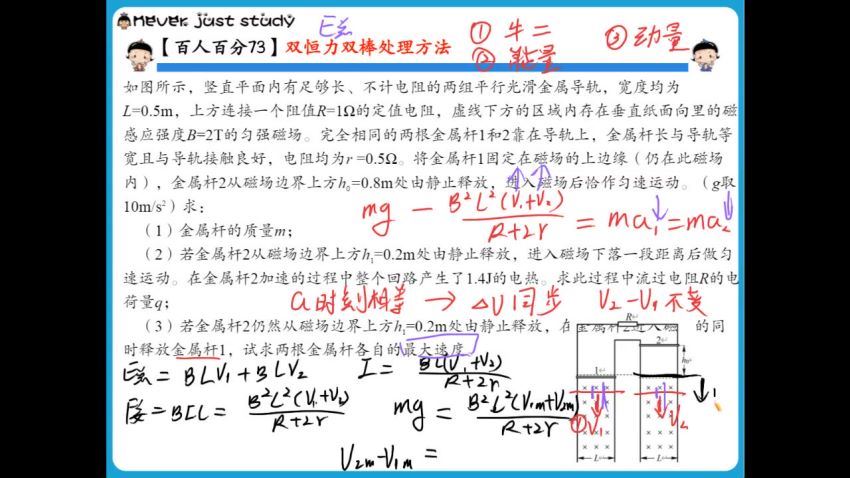 Never just study
E总
① 牛二
② 能量
③ 动量
【百人百分73】双恒力双棒处理方法
如图所示，竖直平面内有足够长、不计电阻的两组平行光滑金属导轨，宽度均为
L=0.5m，上方连接一个阻值R=1Ω的定值电阻，虚线下方的区域内存在垂直纸面向里的磁
感应强度B=2T的匀强磁场。完全相同的两根金属杆1和2靠在导轨上，金属杆长与导轨等
宽且与导轨接触良好，电阻均为r =0.5Ω。将金属杆1固定在磁场的上边缘（仍在此磁场
内），金属杆2从磁场边界上方h₀=0.8m处由静止释放，进入磁场后恰作匀速运动。（g取
10m/s²）求：
mg - B²L²(V₁+V₂)/(R+2r) = ma₁ = ma₂
（1）金属杆的质量m；
（2）若金属杆2从磁场边界上方h₁=0.2m处由静止释放，进入磁场下落一段距离后做匀
速运动。在金属杆2加速的过程中整个回路产生了1.4J的电热。求此过程中流过电阻R的电
荷量q；
a时刻相等 → △V同步 V₂-V₁不变
（3）若金属杆2仍然从磁场边界上方h₁=0.2m处由静止释放，在金属杆2进入磁 的同
时释放金属杆1，试求两根金属杆各自的最大速度。
E总 = BLV₁ + BLV₂ I = BL(V₁+V₂)/(R+2r)
F安 = BIL = B²L²(V₁+V₂)/(R+2r) mg = B²L²(V₁m+V₂m)/(R+2r)
V₂m-V₁m =
R
2
h₀
1
① V₁
V₂
L
L